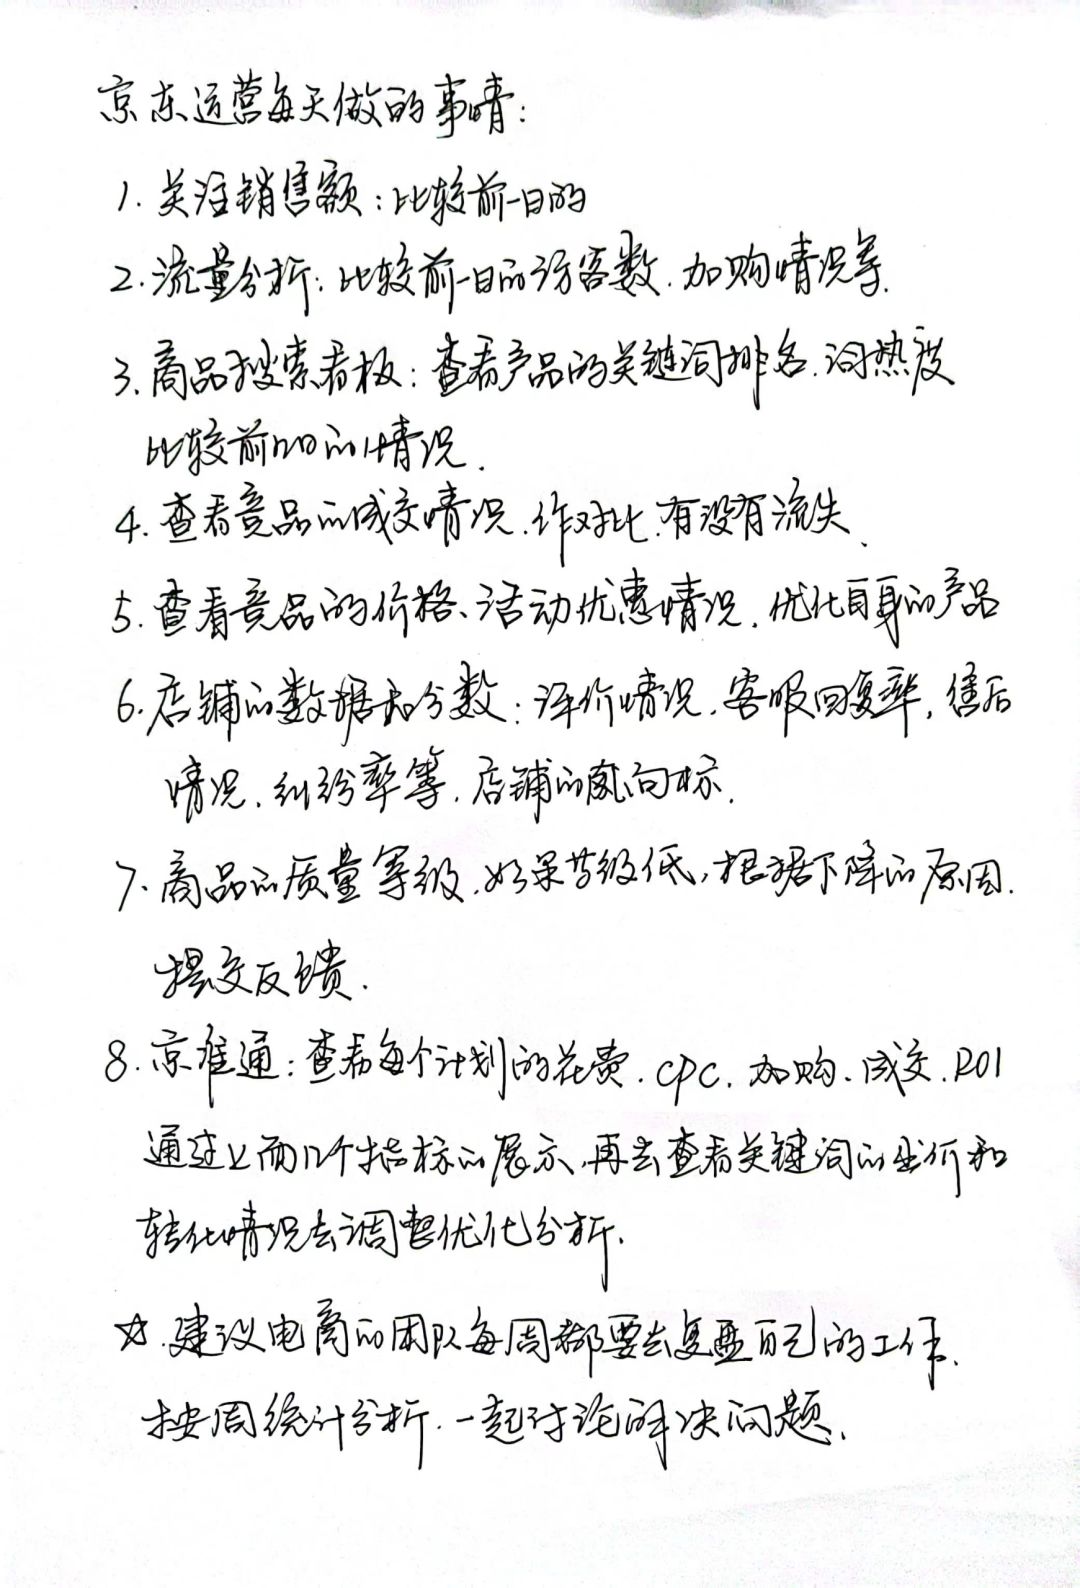 京东运营每天做的事情：
1. 关注销售额：比较前一日的
2. 流量分析：比较前一日的访客数、加购情况等.
3. 商品搜索看板：查看产品的关键词排名、词热度
比较前几日的情况.
4. 查看竞品的成交情况、作对比、有没有流失、
5. 查看竞品的价格、活动优惠情况、优化自身的产品
6. 店铺的数据和分数：评价情况、客服回复率，售后
情况、纠纷率等、店铺的风向标、
7. 商品的质量等级、如果等级低，根据下降的原因、
提交反馈.
8. 京准通：查看每个计划的花费、CPC、加购、成交、ROI
通过上面几个指标的展示、再去查看关键词的出价和
转化情况去调整优化分析.
☆. 建议电商的团队每周都要去复盘自己的工作、
按周统计分析、一起讨论解决问题、